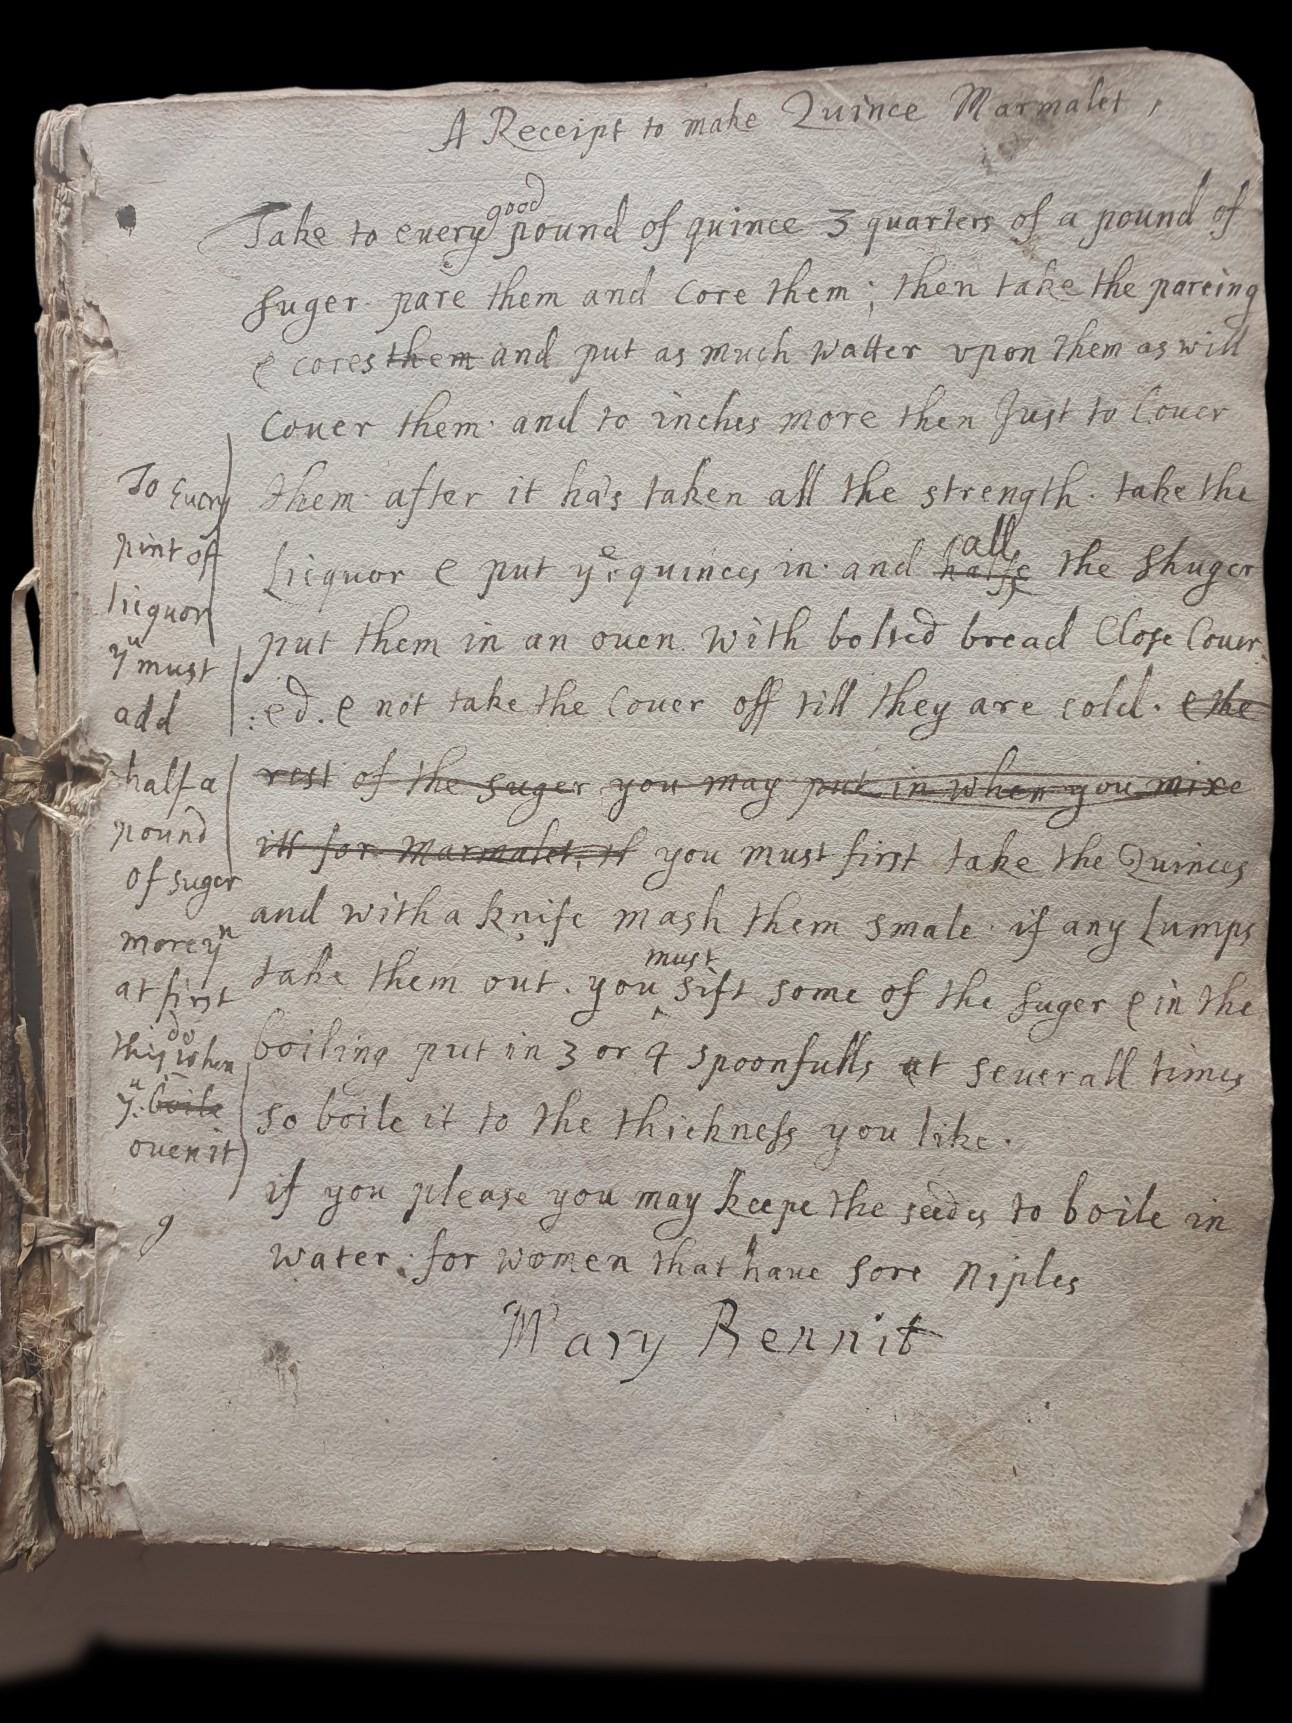 A Receipt to make Quince Marmalet,
Take to euery good pound of quince 3 quarters of a pound of
suger. pare them and Core them; then take the pareing
& cores them and put as much watter vpon them as will
Couer them. and to inches more then Just to Couer
them. after it has taken all the strength. take the
Licquor & put yᵉ quinces in. and halfe all the Shuger
put them in an ouen. with bolted bread Close Couer:
:ed. & not take the Couer off till they are cold. & the
rest of the suger you may put in when you mixe
itt for Marmalet, it you must first take the Quinces
and with a knife mash them smale. if any Lumps
take them out. you must sift some of the suger & in the
boiling put in 3 or 4 spoonfulls at seuerall times
so boile it to the thickness you like.
if you please you may keepe the seedes to boile in
water. for women that haue sore Niples
Mary Bennit
To Euery
pint of
licquor
yᵘ must
add
half a
pound
of suger
more yⁿ
at first
this do when
yᵘ boile
ouen it
g